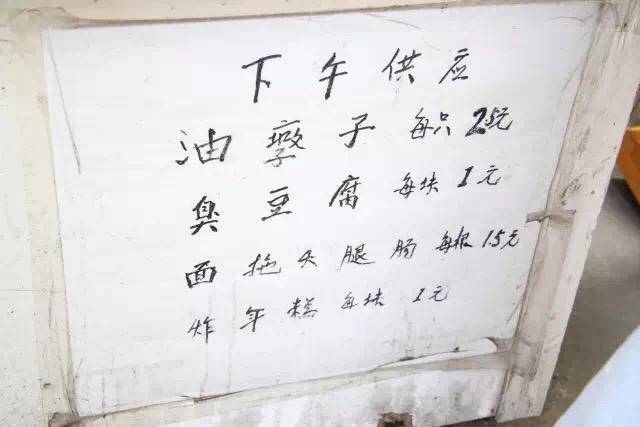 下午供应
油 子 每只 2.5元
臭豆腐 每块 1元
面拖火腿肠 每根 1.5元
炸年糕 每块 1元